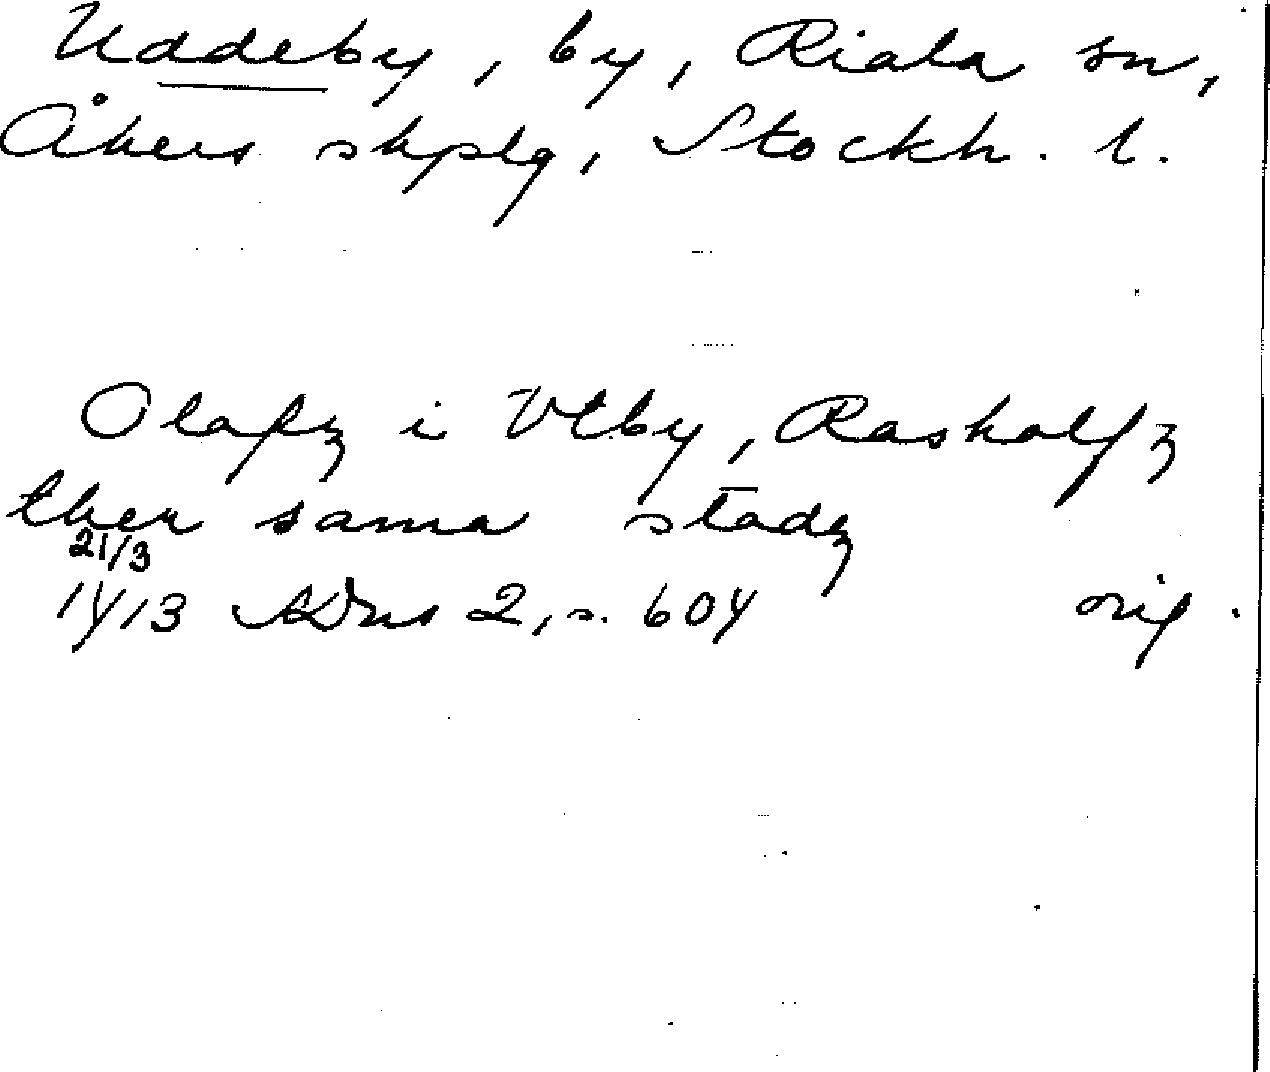 Uddeby, by, Riala sn,
Åkers skplg, Stockh. l.
Olafꝫ i Vtby, Raskalfꝫ
ther sama stadꝫ
21/3
1413 SDns 2, s. 604 orig.